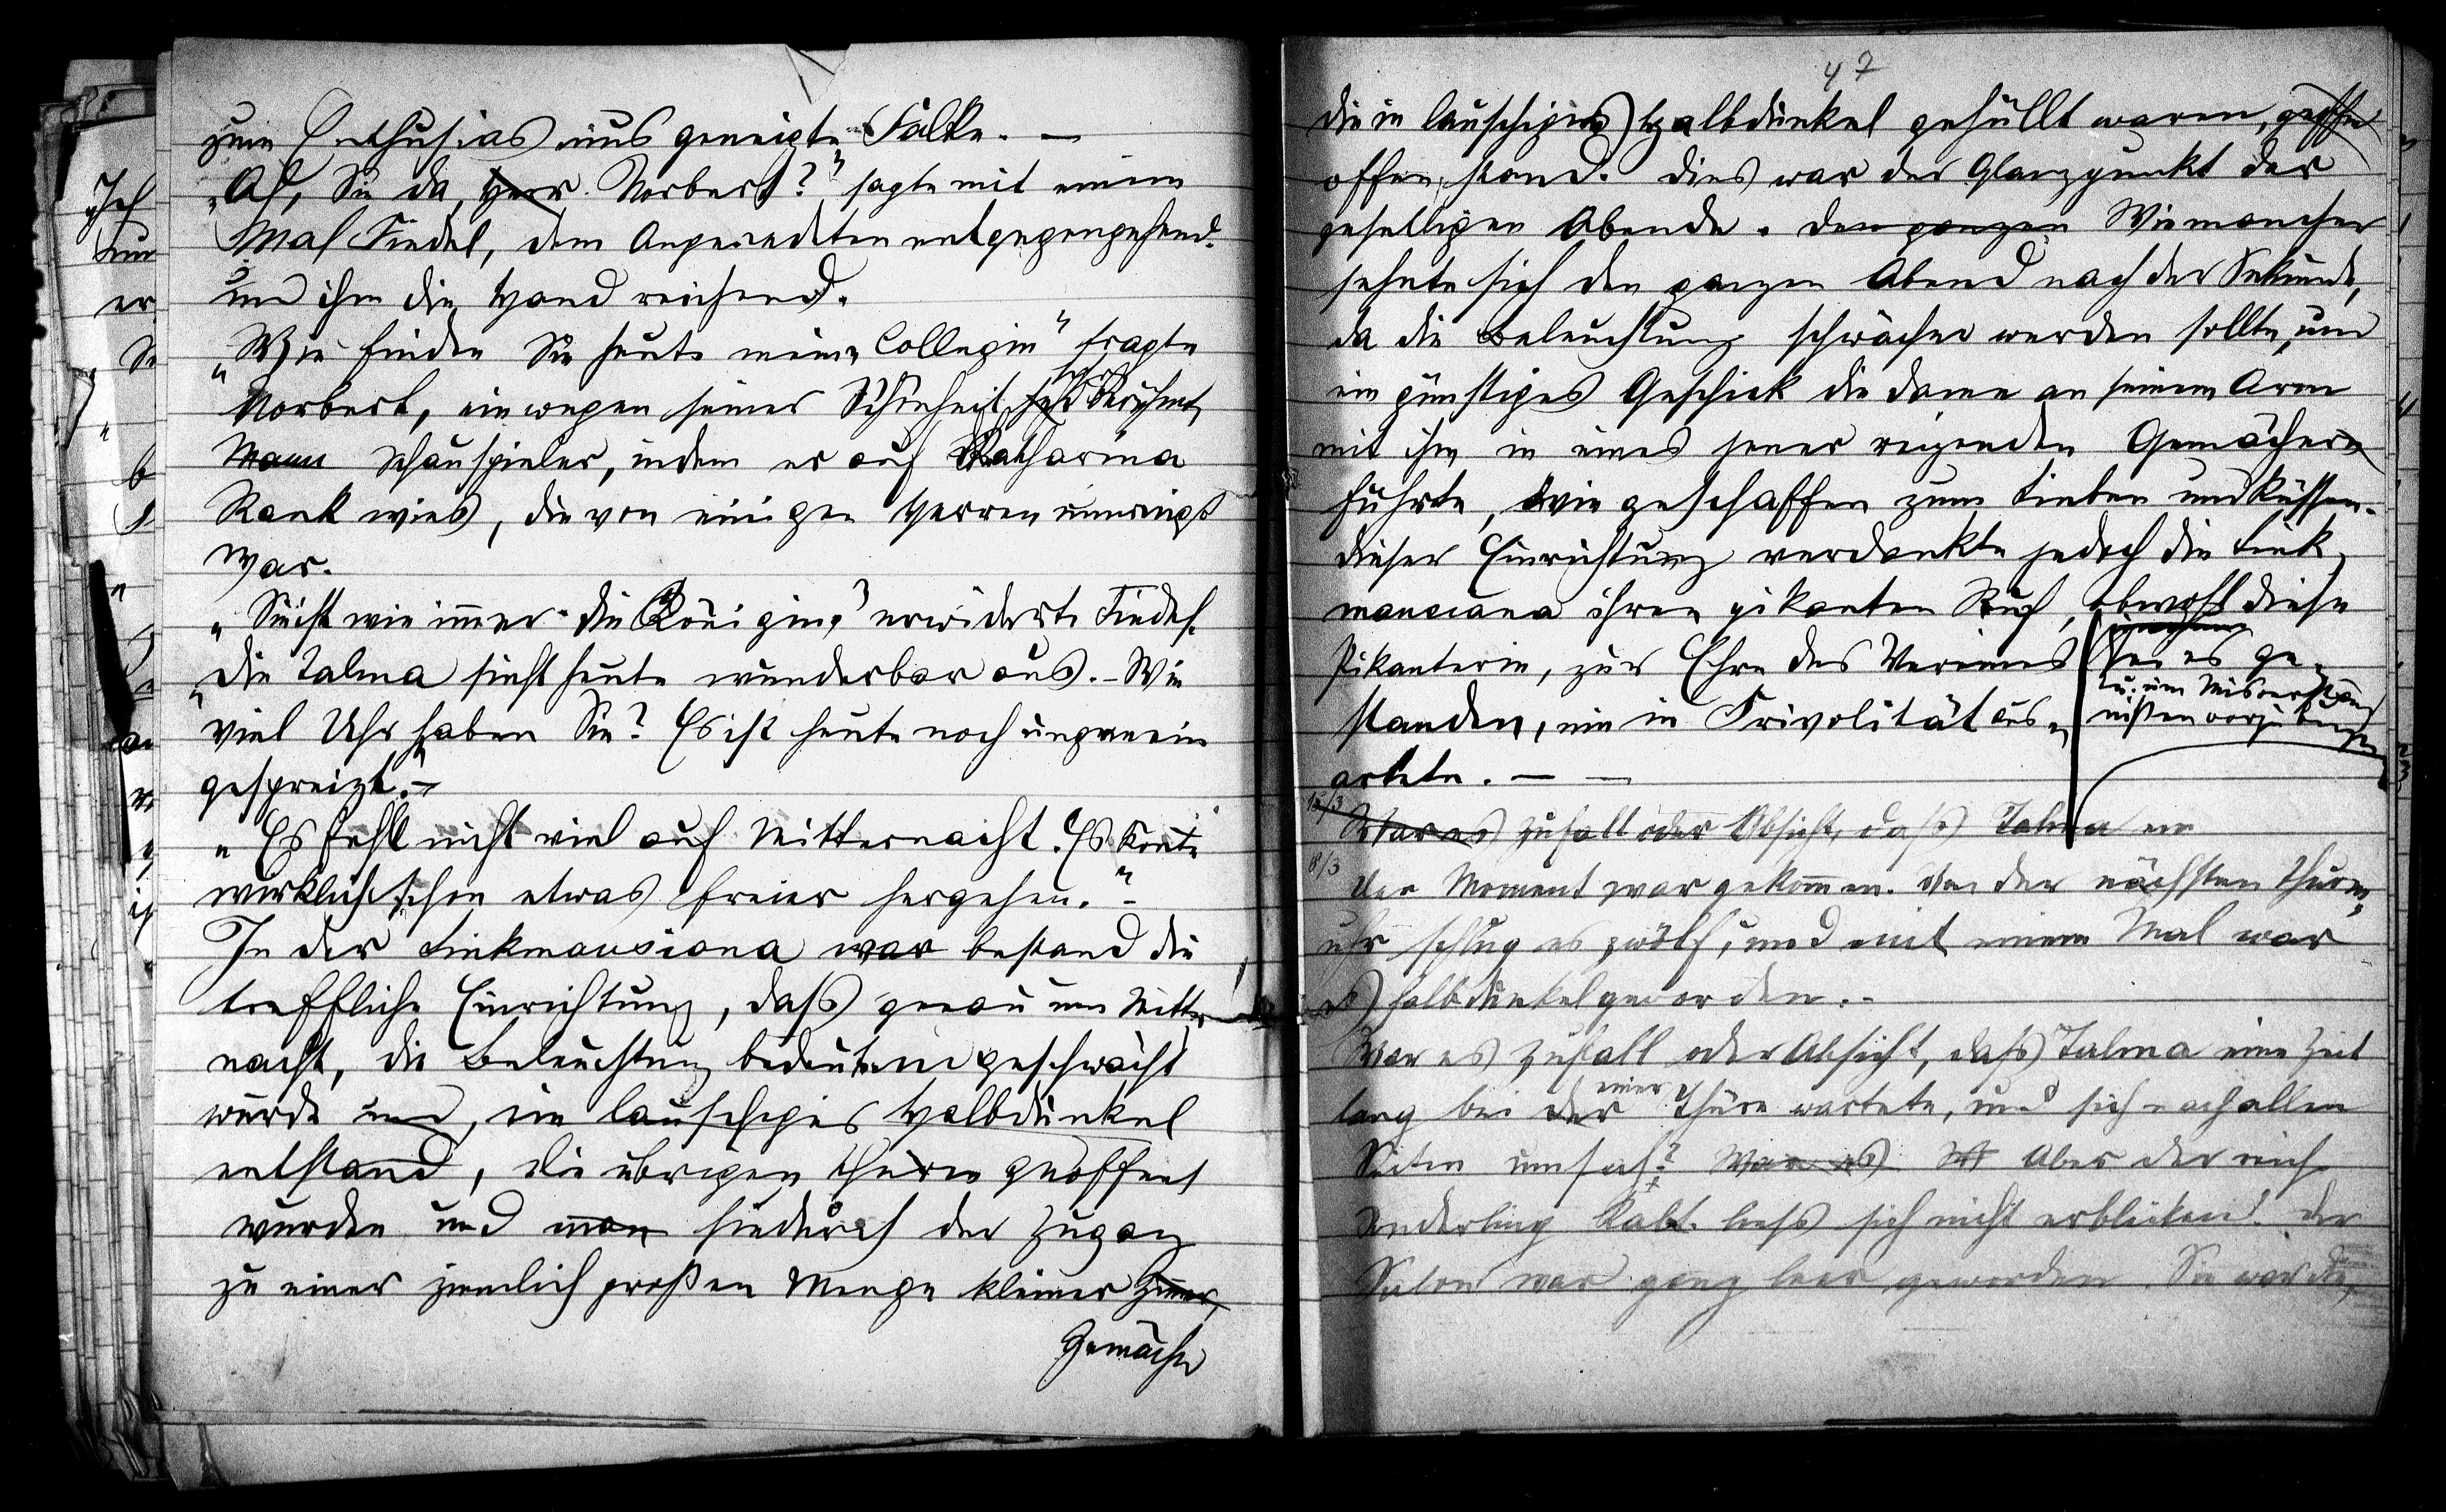 zum Enthusiasmus geneigte Falke. —
„Ah, Sie da, Herr Norbert?" sagte mit einem
Mal Fiedel, dem Angeredeten entgegengehend
und ihm die Hand reichend.
„Wie finden Sie heute meine Collegin" fragte
Norbert, ein wegen seiner Schönheit berühmter
Mann Schauspieler, indem er auf Katharina
Rank wies, die von einigen Herren umringt
war.
„Sie ist wie immer die Königin," erwiderte Fiedel.
„Die Talma sieht heute wunderbar aus. – Wie
viel Uhr haben Sie? Es ist heute noch ungemein
gespreizt." –
„Es fehlt nicht viel auf Mitternacht. Es könnte
wirklich schon etwas freier hergehen." –
In der Linkmansiana war bestand die
treffliche Einrichtung, daß genau um Mitter-
nacht, die Beleuchtung bedeutend geschwächt
wurde und, ein lauschiges Halbdunkel
entstand, die übrigen Thüren geöffnet
wurden und man hiedurch der Zugang
zu einer ziemlich großen Menge kleiner Zimmer,
Gemächer
47
die in lauschiges Halbdunkel gehüllt waren,
offen stand. Dies war der Glanzpunkt der
geselligen Abende. Den ganzen Wie mancher
sehnte sich den ganzen Abend nach der Sekunde,
da die Beleuchtung schwächer werden sollte, und
ein günstiges Geschick die Dame an seinem Arm
mit ihm in eines jener reizenden Gemächer
führte, wie geschaffen zum Lieben und Küssen.
Dieser Einrichtung verdankte jedoch die Link-
mansiana ihren pikanten Ruf, obwohl diese
Pikanterie, zur Ehre des Vereines sei es ge-
standen, nie in Frivolität aus-
u. um Misverständ
nissen vorzubeugen
artete. — —
15/3
War es Zufall oder Absicht, daß Talma
18/3
Der Moment war gekommen. Von der nächsten Thurm-
uhr schlug es zwölf, und mit einem Mal war
es halbdunkel geworden. –
War es Zufall oder Absicht, daß Talma eine Zeit
lang bei der einer Thüre wartete, und sich nach allen
Seiten umsah? War es Aber der reiche
Sonderling Kalt. ließ sich nicht erblicken. Der
Salon war ganz leer geworden. Sie war die